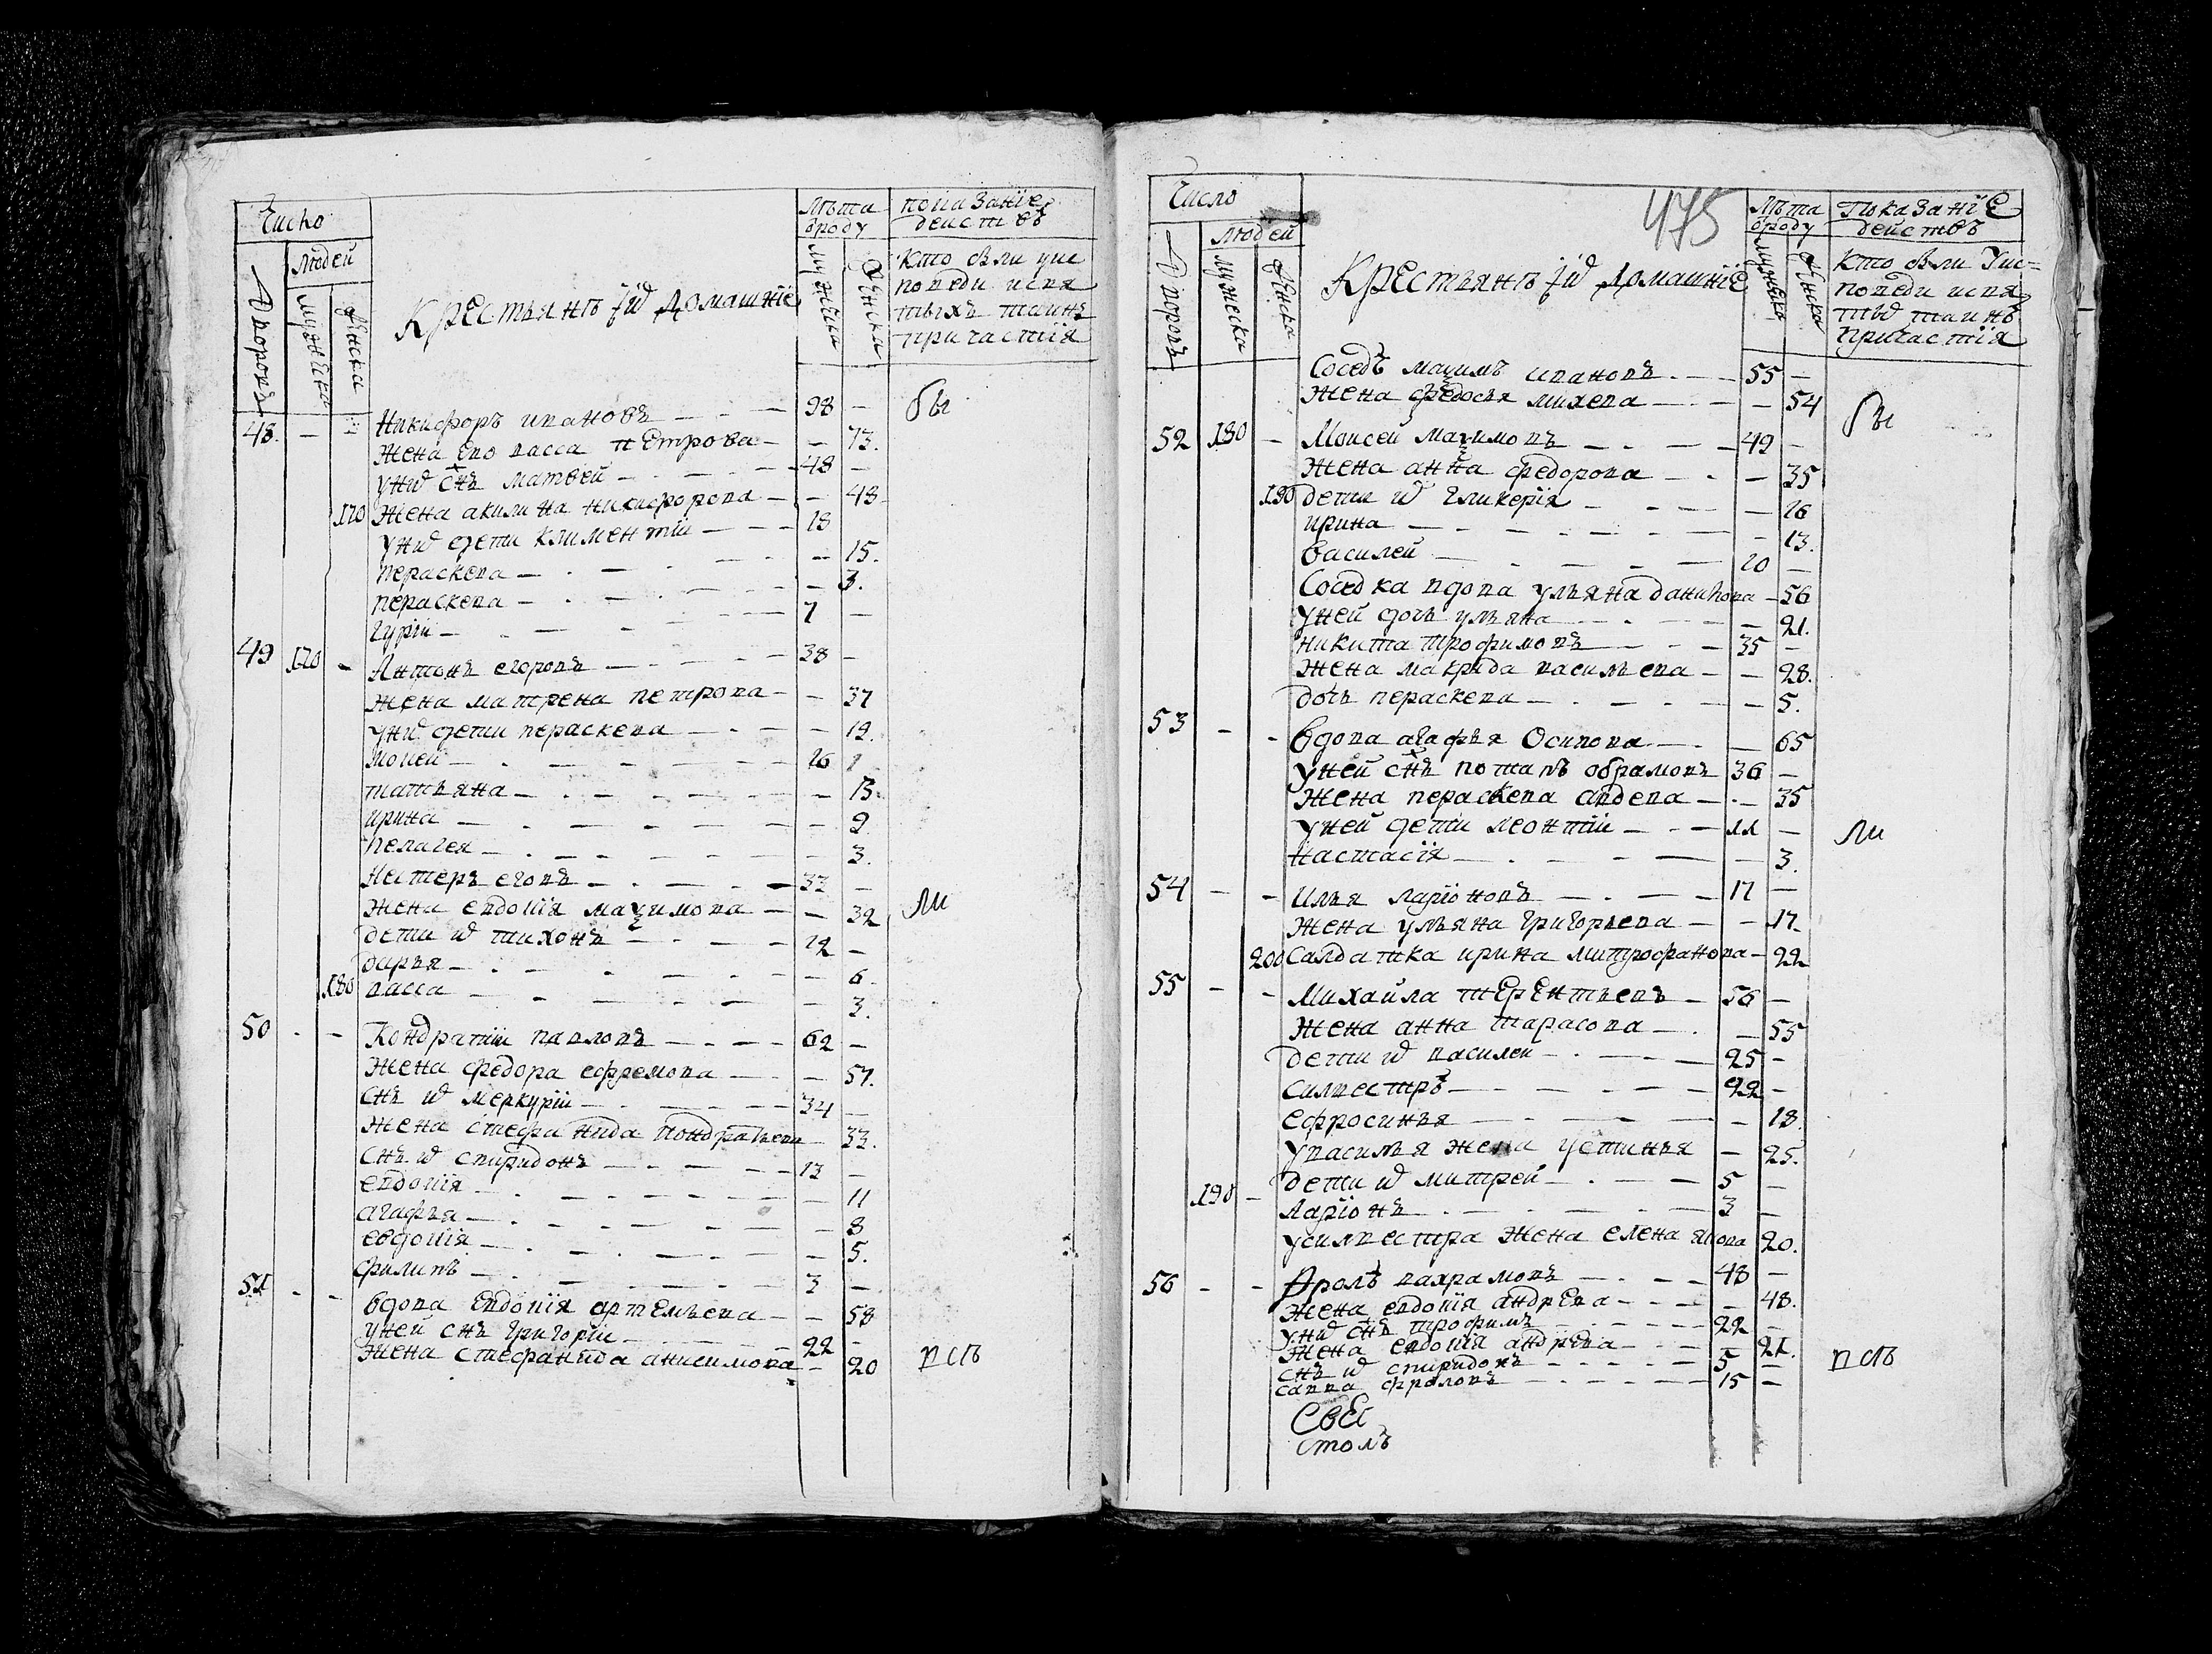 Число
Людей
Дворовъ
мужеска
женска
Крестьянѣ їхъ домашнїе
Лѣта
ѿроду
мужеска
женска
показанїе
действъ
Кто были уис
поведи исвя
тыхъ таинъ
причастїя
48. – – Никифоръ ивановъ – 98 – бы
жена его васса петрова – – 73.
унихъ снъ матвей – 48 –
170 жена акилина никифорова – – 48
унихъ дети климентїи – 18
пераскева – – 15.
пераскева – – 3.
гурїи – 7 –
49 170 – Антонъ егоровъ – 38 –
жена матрена петрова – – 37
унихъ дети пераскева – – 19.
мокеи – 16 1
татьяна – – 13.
ирина – – 9
пелагея – – 3.
нестеръ еговъ – 33 –
жена евдокїя маѯимова – – 32 ли
дети ихъ тихонъ – 12 –
дарья – – 6.
180 васса – – 3.
50 – – Кондратїи павловъ – 62 –
жена федора ефремова – – 57.
снъ ихъ меркурїи – 34 –
жена стефанида кондратьева – 33.
снъ ихъ спиридонъ – 13 –
евдокїя – – 11
агафья – – 8
евдокїя – – 5.
филипъ – 3 –
51 – – вдова евдокїя артемьева – – 58
уней снъ григорїи – 22 –
жена стефанида анисимова – 20 всѣ
475
Число
Людей
Дворовъ
мужеска
женска
Крестьянѣ їхъ домашнїе
Лѣта
ѿроду
мужеска
женска
показанїе
действъ
Кто были уис=
поведи исвя
тыхъ таинъ
причастїя
Соседъ маѯимъ ивановъ. – 55 –
жена федосья михева – – 54
бы
52 180 – Моисей маѯимовъ – 49 –
жена анна федорова – – 35
190 дети ихъ гликерїя – – 16
ирина – – 13.
василей – 10 –
Соседка вдова ульяна данилова – 56
уней дочь ульяна – – 21.
никита трофимовъ – 35 –
жена макрида васильева – – 28.
дочь пераскева – – 5.
53 – – вдова агафья Осипова – – 65
уней снъ потапъ обрамовъ 36 –
жена пераскева авдева – – 35
уней дети леонтїи – 11 – ли
настасїя – – 3.
54 – – илья ларїоновъ – 17 –
жена ульяна григорьева – – 17.
200 Салдатка ирина митрофанова – 22
55 – – Михайла терентьевъ – 56 –
жена анна тарасова – – 55
дети ихъ василеи – 25 –
силвестръ – 22 –
ефросинья – – 18.
увасилья жена устинья – 25.
дети ихъ митрей – 5 –
190 – Ларїонъ – 3 –
усилвестра жена елена якова 20.
56 – – Фролъ вахрамовъ – 48 –
жена евдокїя андрева – – 48.
унихъ снъ трофимъ – 22 –
жена евдокїя андрева – – 21.
снъ ихъ спиридонъ – 5 – всѣ
савва фроловъ – 15 –
столъ